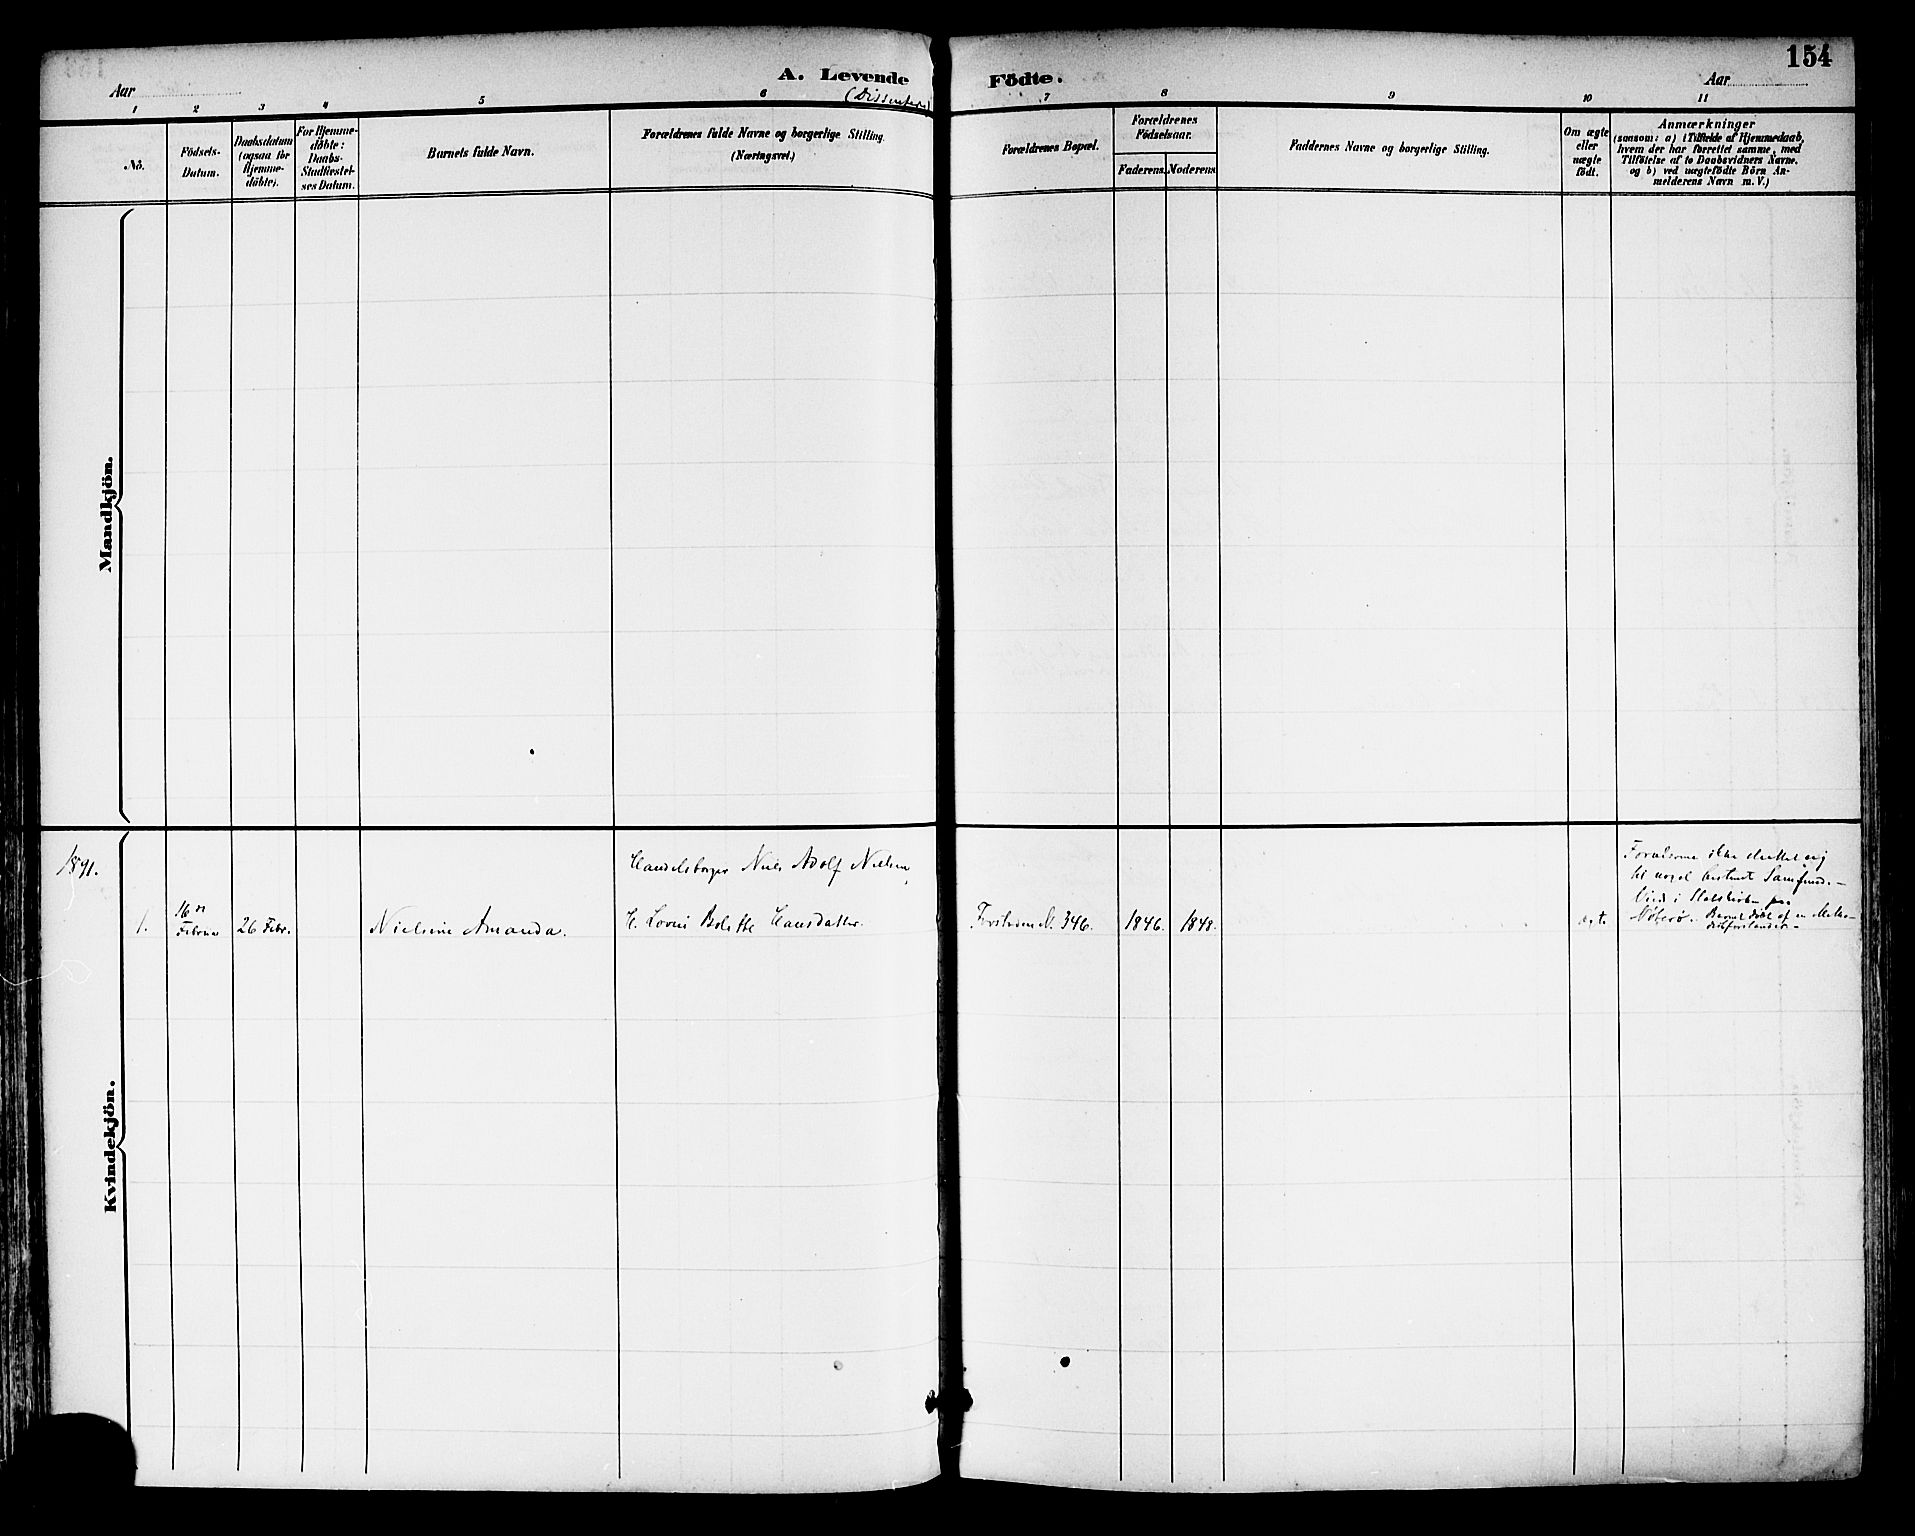 154
A. Levende Födte.
(Dissentere)
Aar
Aar
1 2 3 4 5 6 7 8 9 10 11
No.
Födsels-
Datum.
Daabsdatum
(ogsaa for
Hjemme-
döbte).
For Hjemme-
döbte:
Daabs-
Stadfæstel-
ses Datum.
Barnets fulde Navn.
Forældrenes fulde Navne og borgerlige Stilling.
(Næringsvei.)
Forældrenes Bopæl.
Forældrenes
Födselsaar.
Faderens.
Moderens
Faddernes Navne og borgerlige Stilling.
Om ægte
eller
uægte
födt.
Anmærkninger
(saasom: a) i Tilfælde af Hjemmedaab,
hvem der har forrettet samme, med
Tilföielse af to Daabsvidners Navne.
og b) ved uægtefödte Börn An-
melderens Navn m. V.)
Mandkjön.
Kvindekjön.
1891.
1.
16de
Februar
26 Febr.
Nielsine Amanda.
Handelsborger Niels Adolf Nielsen,
H. Lovise Bolette Hansdatter.
No. 346.
1846.
1848.
ægte
Forældrene ikke sluttet sig
til noget bestemt Samfund.-
Viede i Statskirken paa
Nöterö.- Barnet döbt af en Metho-
distforstander.-